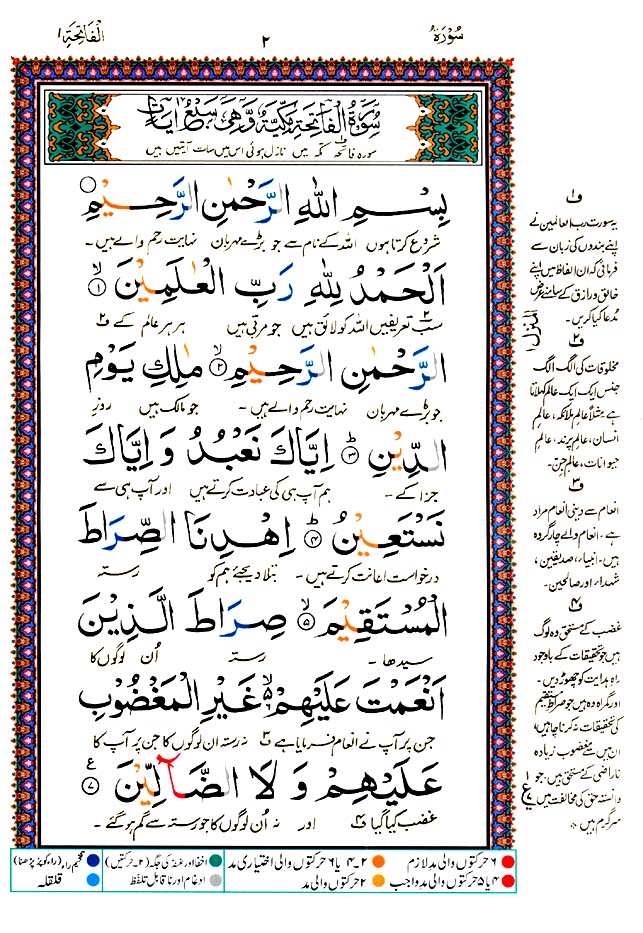 سُوْرَةُ
٢
اَلْفَاتِحَةِ ١
سُوْرَةُ الْفَاتِحَةِ مَكِّيَّةٌ وَّهِيَ سَبْعُ اٰيَاتٍ
سورہ فاتحہ مکہ میں نازل ہوئی اس میں سات آیتیں ہیں
بِسْمِ اللّٰهِ الرَّحْمٰنِ الرَّحِيْمِ
شروع کرتا ہوں اللہ کے نام سے جو بڑے مہربان نہایت رحم والے ہیں ۔
اَلْحَمْدُ لِلّٰهِ رَبِّ الْعٰلَمِيْنَ ۙ﴿۱﴾
سب تعریفیں اللہ کو لائق ہیں جو مربی ہیں ہر ہر عالم کے ف۲
الرَّحْمٰنِ الرَّحِيْمِ ۙ﴿۲﴾ مٰلِكِ يَوْمِ
جو بڑے مہربان نہایت رحم والے ہیں ۔ جو مالک ہیں روزِ
الدِّيْنِ ؕ﴿۳﴾ اِيَّاكَ نَعْبُدُ وَ اِيَّاكَ
جزا کے ۔ ہم آپ ہی کی عبادت کرتے ہیں اور آپ ہی سے
نَسْتَعِيْنُ ؕ﴿۴﴾ اِهْدِنَا الصِّرَاطَ
درخواست اعانت کرتے ہیں ۔ بتلا دیجئے ہم کو رستہ
الْمُسْتَقِيْمَ ۙ﴿۵﴾ صِرَاطَ الَّذِيْنَ
سیدھا ۔ رستہ اُن لوگوں کا
اَنْعَمْتَ عَلَيْهِمْ ۙ﴿۶﴾ غَيْرِ الْمَغْضُوْبِ
جن پر آپ نے انعام فرمایا ہے ف۳ نہ رستہ ان لوگوں کا جن پر آپ کا
عَلَيْهِمْ وَ لَا الضَّآلِّيْنَ ﴿۷﴾ ع
غضب کیا گیا ف۴ اور نہ اُن لوگوں کا جو رستہ سے گم ہو گئے ۔
ف۱
یہ سورت رب العالمین نے
اپنے بندوں کی زبان سے
فرمائی کہ ان الفاظ میں اپنے
خالق و رازق کے سامنے عرض
مُدعا کیا کریں ۔
المنزل ۱
ف۲
مخلوقات کی الگ الگ
جنس ایک ایک عالم کہلاتا
ہے مثلاً عالمِ ملائکہ، عالمِ
انسان، عالمِ پرند، عالمِ
حیوانات، عالمِ جِن ۔
ف۳
انعام سے دینی انعام مراد
ہے ۔ انعام والے چار گروہ
ہیں ۔ انبیاء، صدیقین،
شہداء اور صالحین ۔
ف۴
غضب کے مستحق وہ لوگ
ہیں جو تحقیقات کے باوجود
راہِ ہدایت کو چھوڑ دیں ۔
اور گمراہ وہ ہیں جو صراطِ مستقیم
کی تحقیقات نہ کرنا چاہیں،
ان میں سے مغضوب زیادہ
ناراضی کے مستحق ہیں ۔ جو
دانستہ حق کی مخالفت میں
سرگرم ہیں ۔
١
ع
٧
۶ حرکتوں والی مدِ لازم
۲۔۴ یا ۶ حرکتوں والی اختیاری مد
اخفا اور غنہ کی جگہ (۲۔حرکتیں)
تفخیم راء (راء کو پُر پڑھنا)
۴ یا ۵ حرکتوں والی مد واجب
۲ حرکتوں والی مد
ادغام اور ناقابل تلفظ
قلقلہ